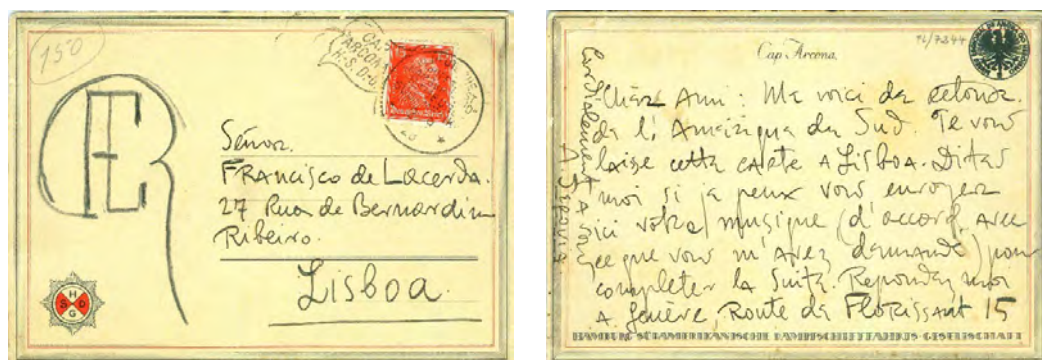 150
CAP
ARCONA
H.S.D.G.
Señor.
FRANCISCO de LACERDA.
27 Rua de Bernardim
Ribeiro.
Lisboa.
H
S D
G
76/7344
Cap Arcona
Chèr Ami: Me voici de retour
de l'Amérique du Sud. Je vous
laisse cette carte A Lisboa. Dites
moi si je peux vous envoyer
ici votre musique (d'accord avec
ce que vous m'avez demandé) pour
completer la Suite. Repondez moi
A Genève, Route de Florissant 15
Cordialement A vous
A. Segovia
HAMBURG SÜDAMERIKANISCHE DAMPFSCHIFFFAHRTS-GESELLSCHAFT